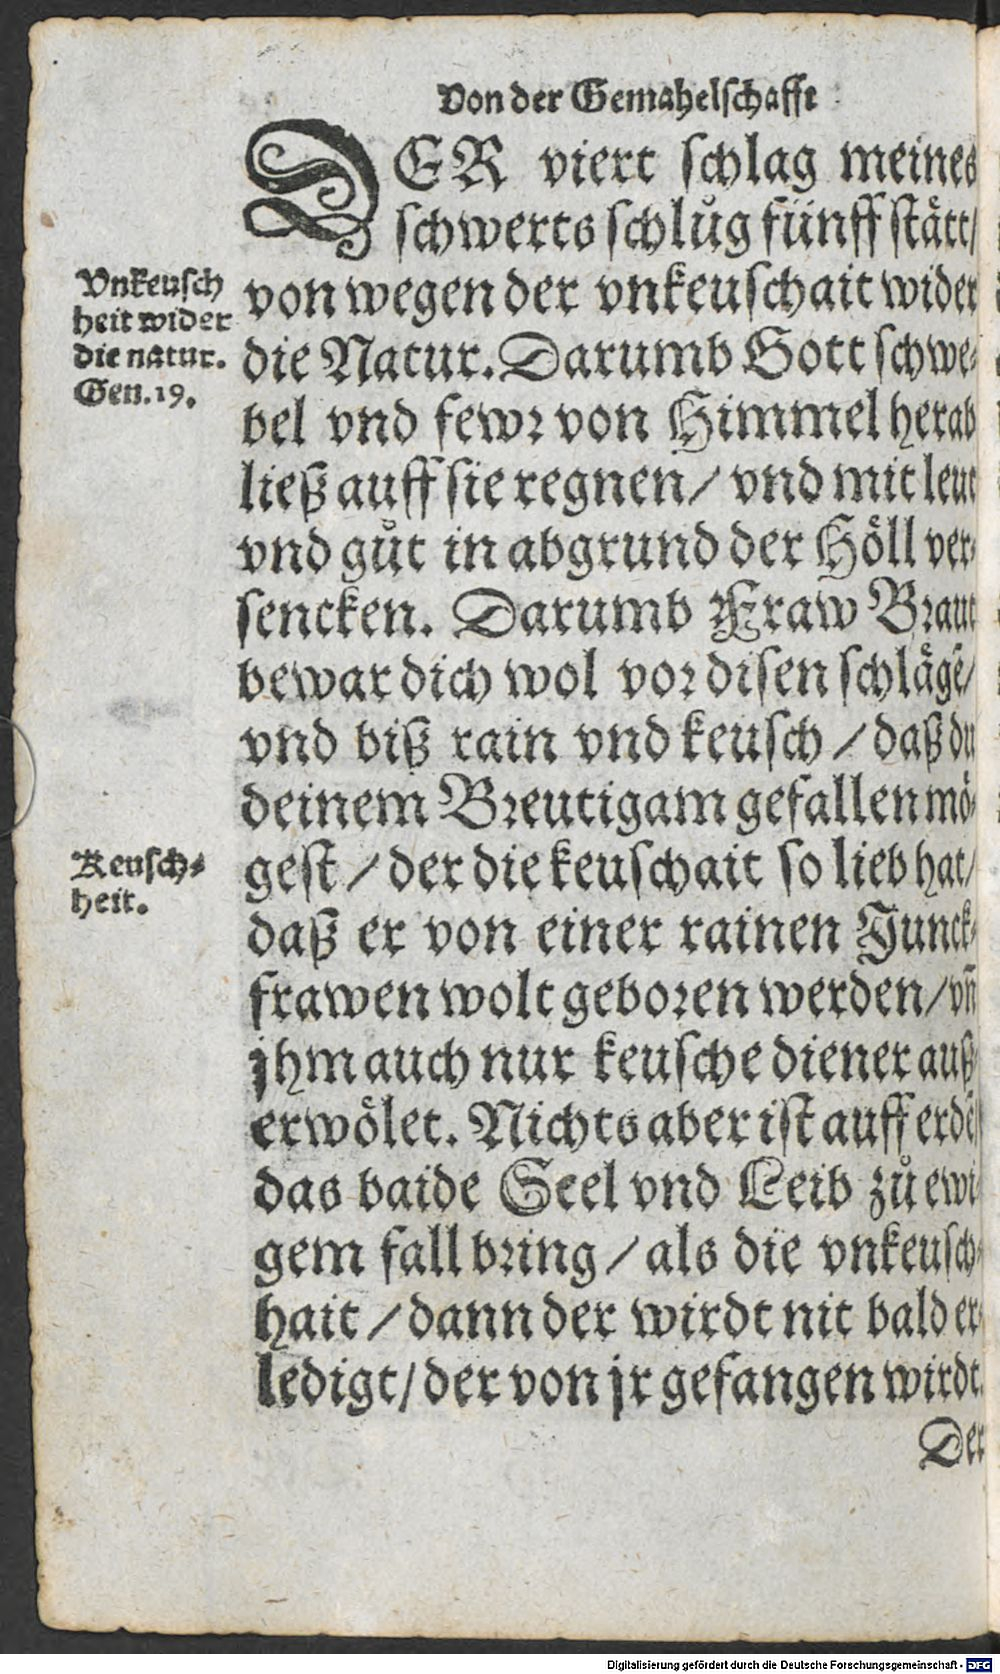 Von der Gemahelschafft
DER viert schlag meines
schwerts schlůg fünff stätt/
Vnkeusch
heit wider
die natur.
Gen. 19.
von wegen der vnkeuschait wider
die Natur. Darumb Gott schwe-
bel vnd fewr von Himmel herab
ließ auff sie regnen/ vnd mit leut
vnd gůt in abgrund der Höll ver-
sencken. Darumb Fraw Braut
bewar dich wol vor disen schläge/
vnd biß rain vnd keusch / daß du
deinem Breutigam gefallen mö-
Keusch-
heit.
gest / der die keuschait so lieb hat/
daß er von einer rainen Junck-
frawen wolt geboren werden/ vñ
jhm auch nur keusche diener auß-
erwölet. Nichts aber ist auff erdē/
das baide Seel vnd Leib zů ewi-
gem fall bring / als die vnkeusch-
hait / dann der wirdt nit bald er-
ledigt/ der von jr gefangen wirdt.
Der
Digitalisierung gefördert durch die Deutsche Forschungsgemeinschaft - DFG